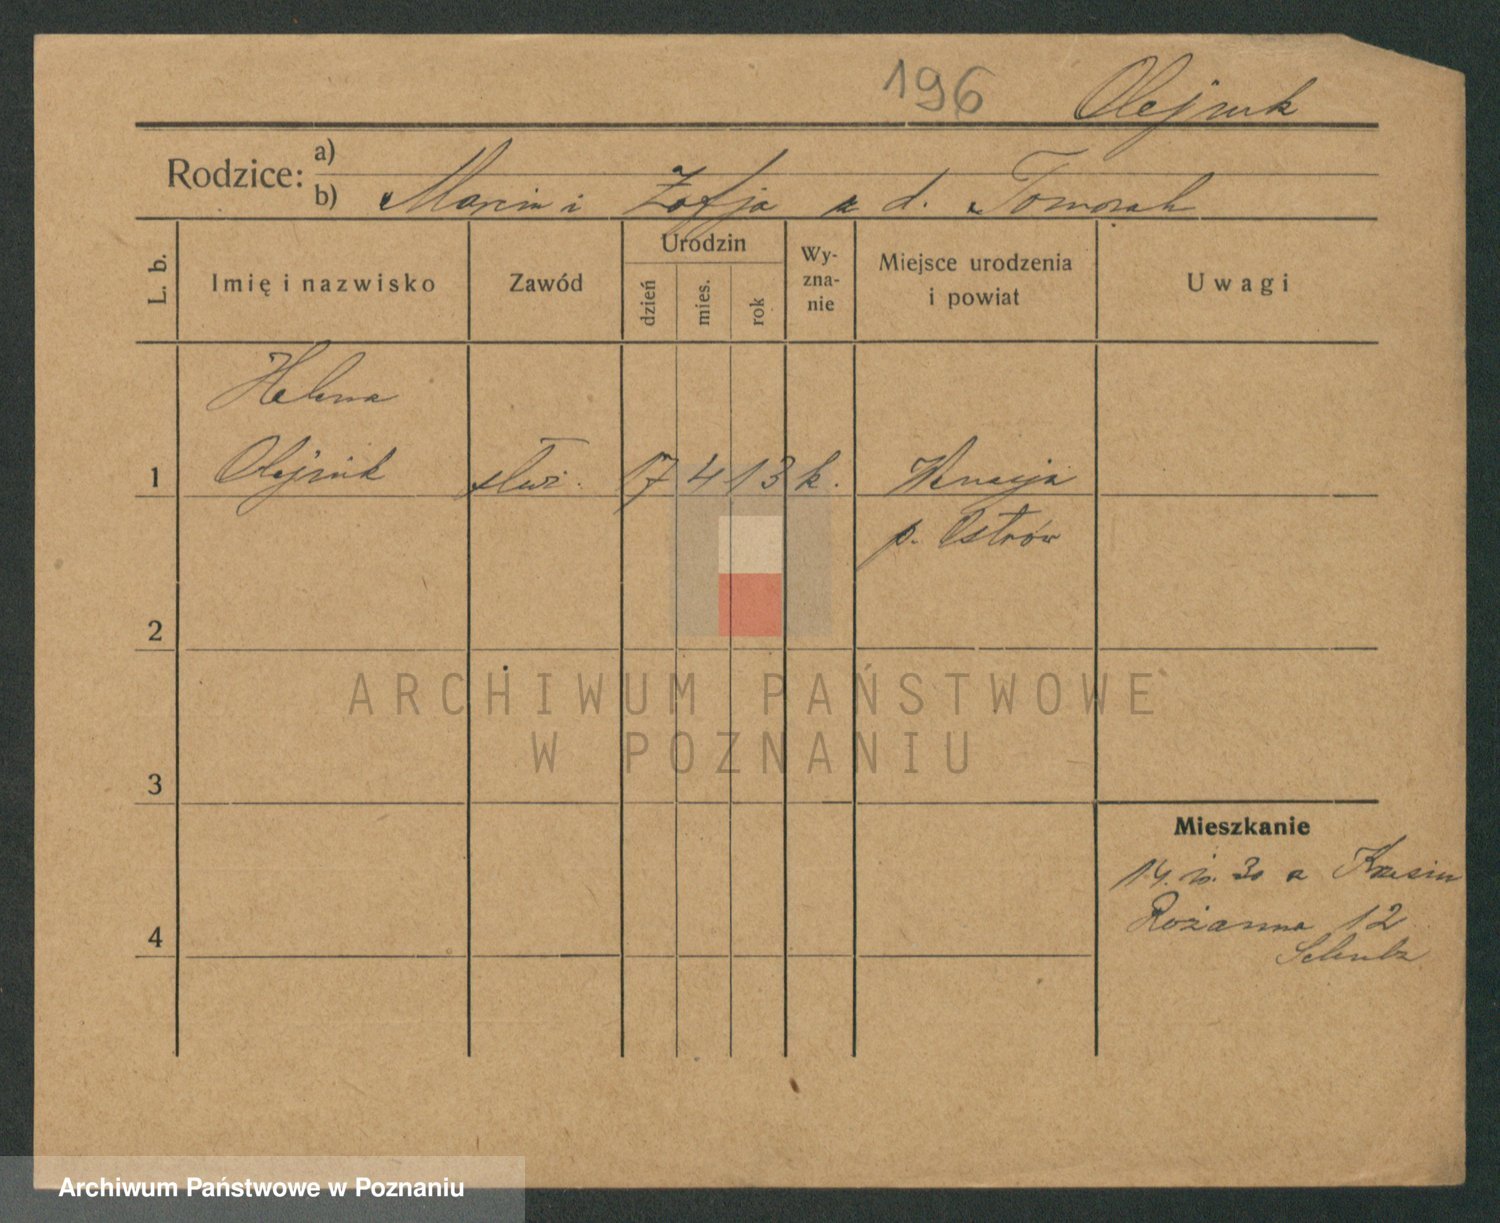 196 Olejnik
Rodzice:
a)
b) Marcin i Zofja z d. Tomczak
L. b.
Imię i nazwisko
Zawód
Urodzin
dzień
mies.
rok
Wy-
zna-
nie
Miejsce urodzenia
i powiat
Uwagi
Helena
1 Olejnik służ. 17 4 13 k. Wenecja
p. Ostrów
2
3
4
ARCHIWUM PAŃSTWOWE
W POZNANIU
Mieszkanie
30 z
Różanna 12
Schulz
Archiwum Państwowe w Poznaniu